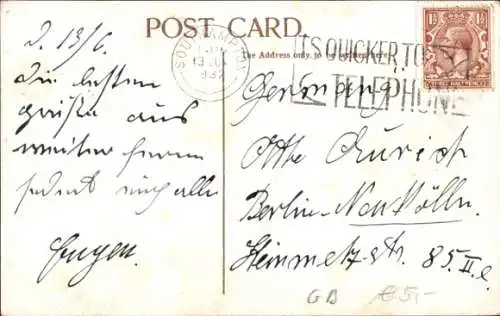 POST CARD.
The Address only to be
SOUTHAMPTON
13 JU
1932
IT'S QUICKER TO
TELEPHONE
1½ 1½
D. 13/6.
Die besten
Grüße aus
weiter Ferne
sendet euch alle
Eugen.
Germany
Otto
Berlin-Neukölln.
Steinmetz-str. 85 II. l.
GB €5,-